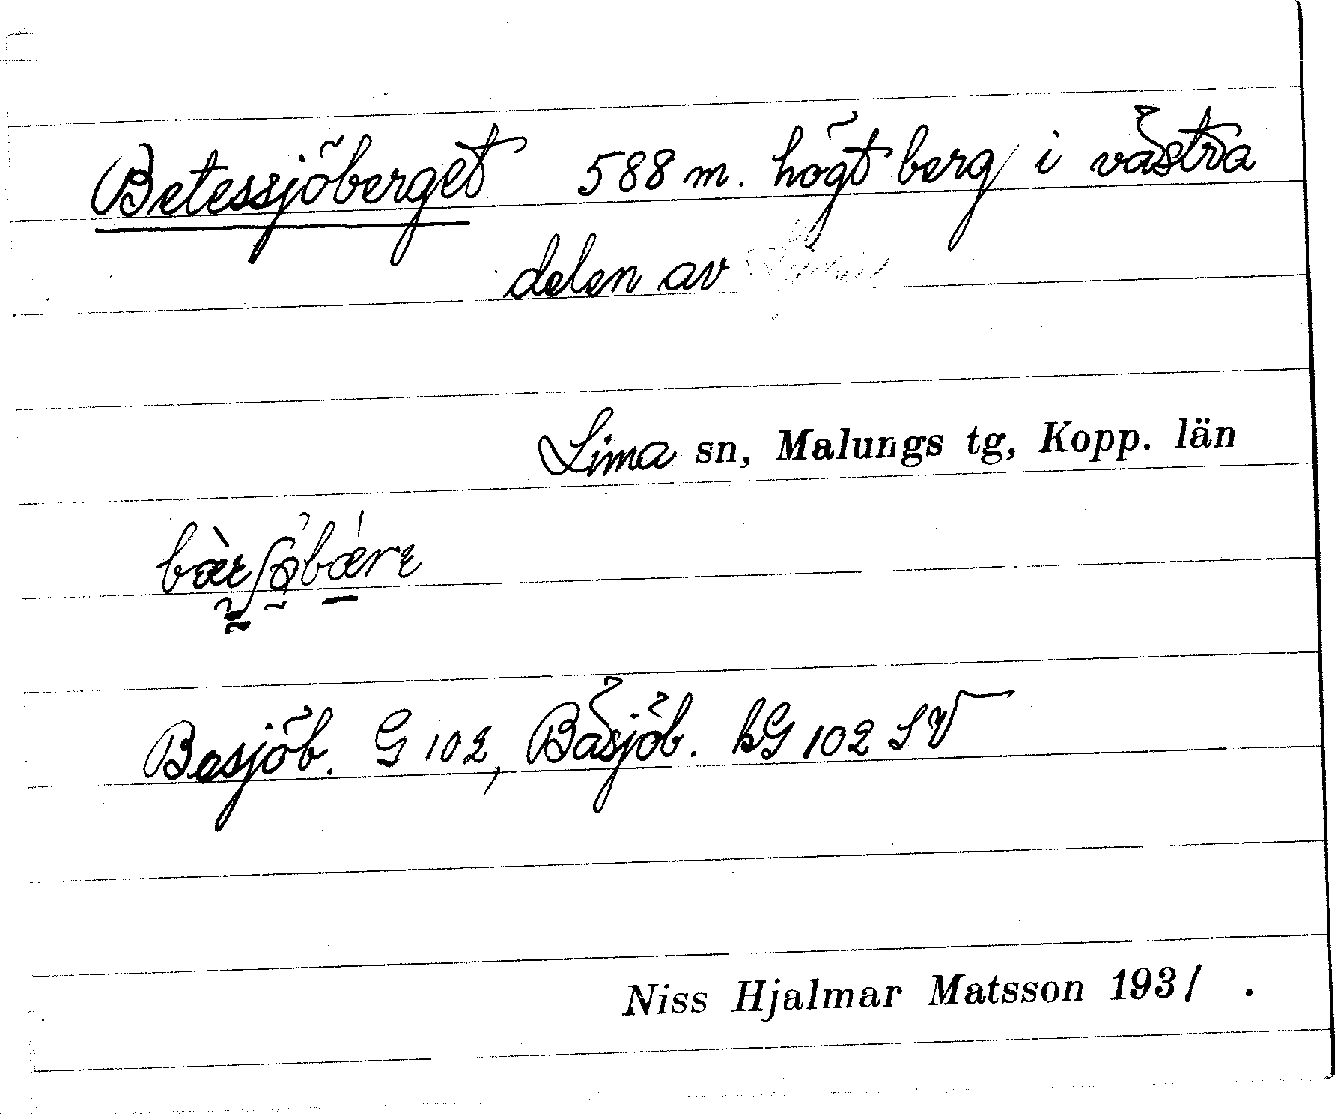 Betessjöberget 588 m. högt berg i västra
delen av
Lima sn, Malungs tg, Kopp. län
Besjöb. G 102, Båsjöb. kG 102 SV
Niss Hjalmar Matsson 1931.